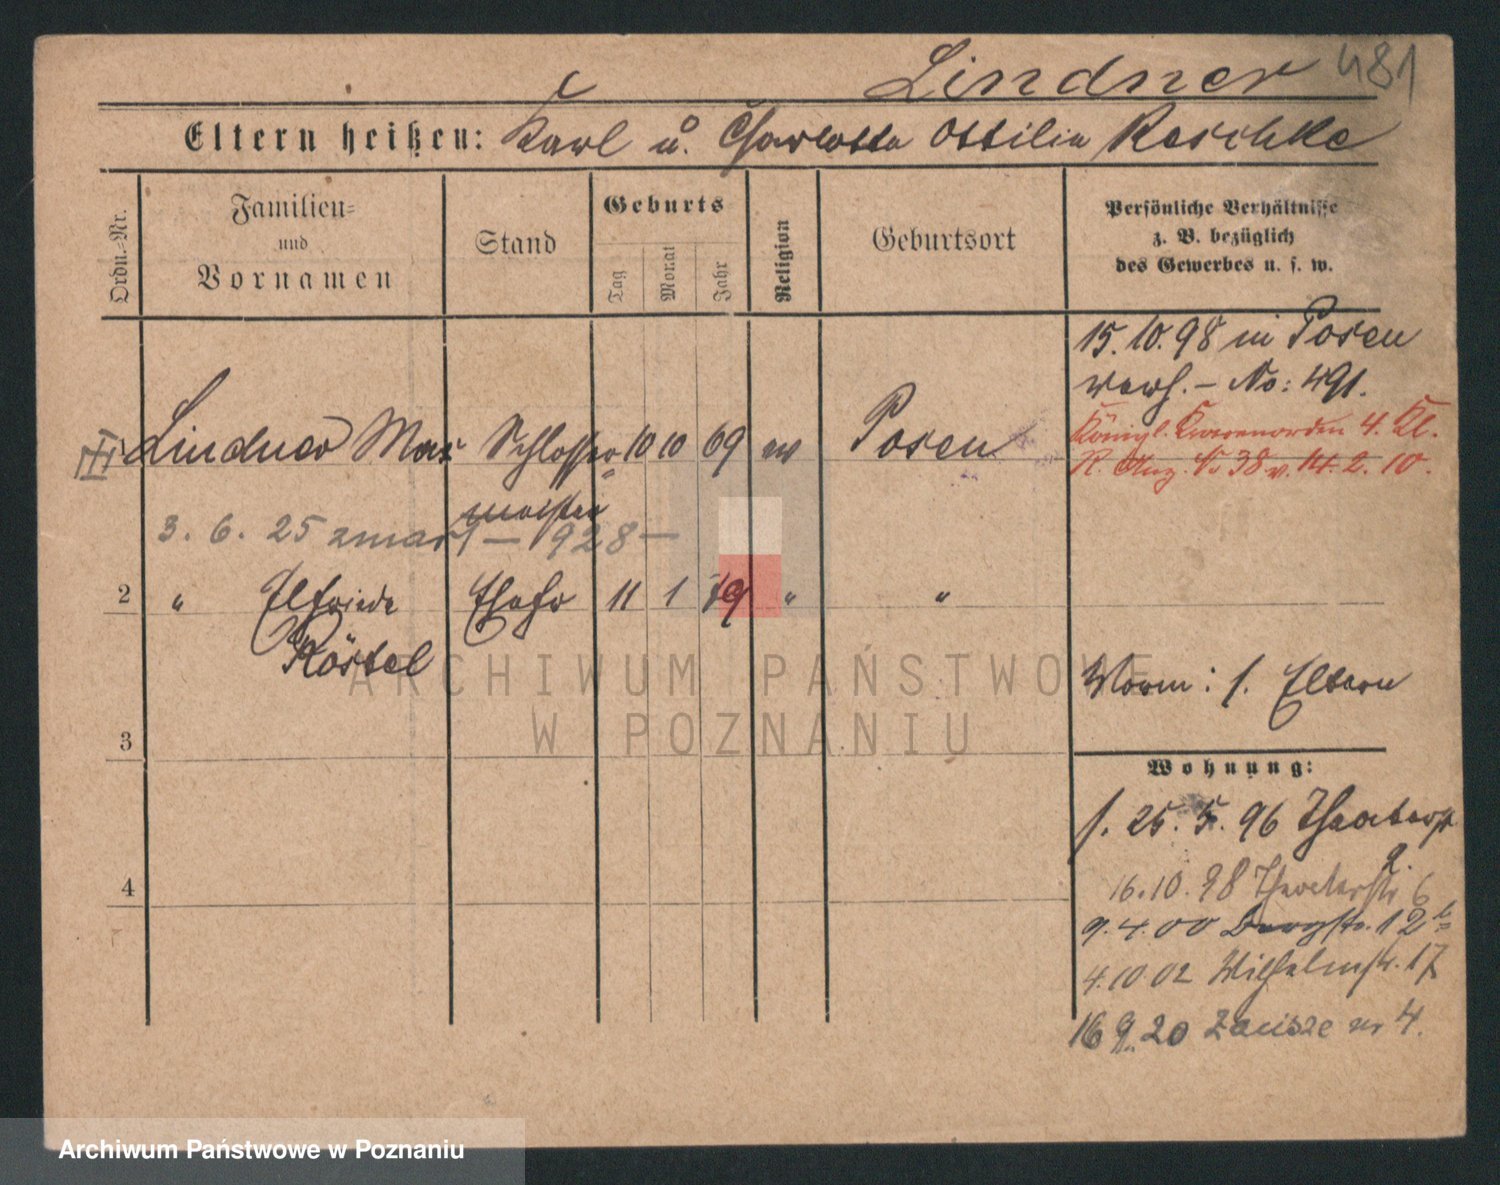 Lindner 481
Eltern heißen: Karl u. Charlotte Ottilie Reschke
Ordn.-Nr.
Familien-
und
Vornamen
Stand
Geburts
Tag
Monat
Jahr
Religion
Geburtsort
Persönliche Verhältnisse
z. B. bezüglich
des Gewerbes u. s. w.
15.10.98 in Posen
verh. – No: 491.
Königl. Kronenorden 4. Kl.
R. Anz. No 38 v. 14. 2. 10.
Lindner Max Schlosser= 10 10 69 ev Posen
meister
3. 6. 25 zmarł — 1928 —
2 " Elfriede Ehefr 11 1 79 " "
Röstel
Vorm: s. Eltern
3
Wohnung:
s. 25. 5. 96 Theaterst
2.
16.10.98 Theaterstr 6
4
9.4.00 Bergstr. 12b
4.10.02 Wilhelmstr. 17
16 9. 20 Zacisze nr 4.
ARCHIWUM PAŃSTWOWE
W POZNANIU
Archiwum Państwowe w Poznaniu